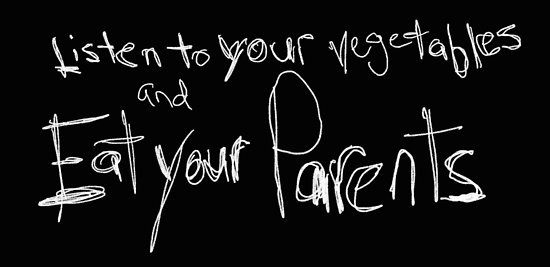 Listen to your vegetables
and
Eat your Parents